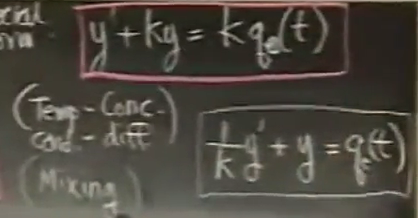 y' + ky = k qₑ(t)
(Temp - Conc.
cond. - diff)
(Mixing)
1/k y' + y = qₑ(t)